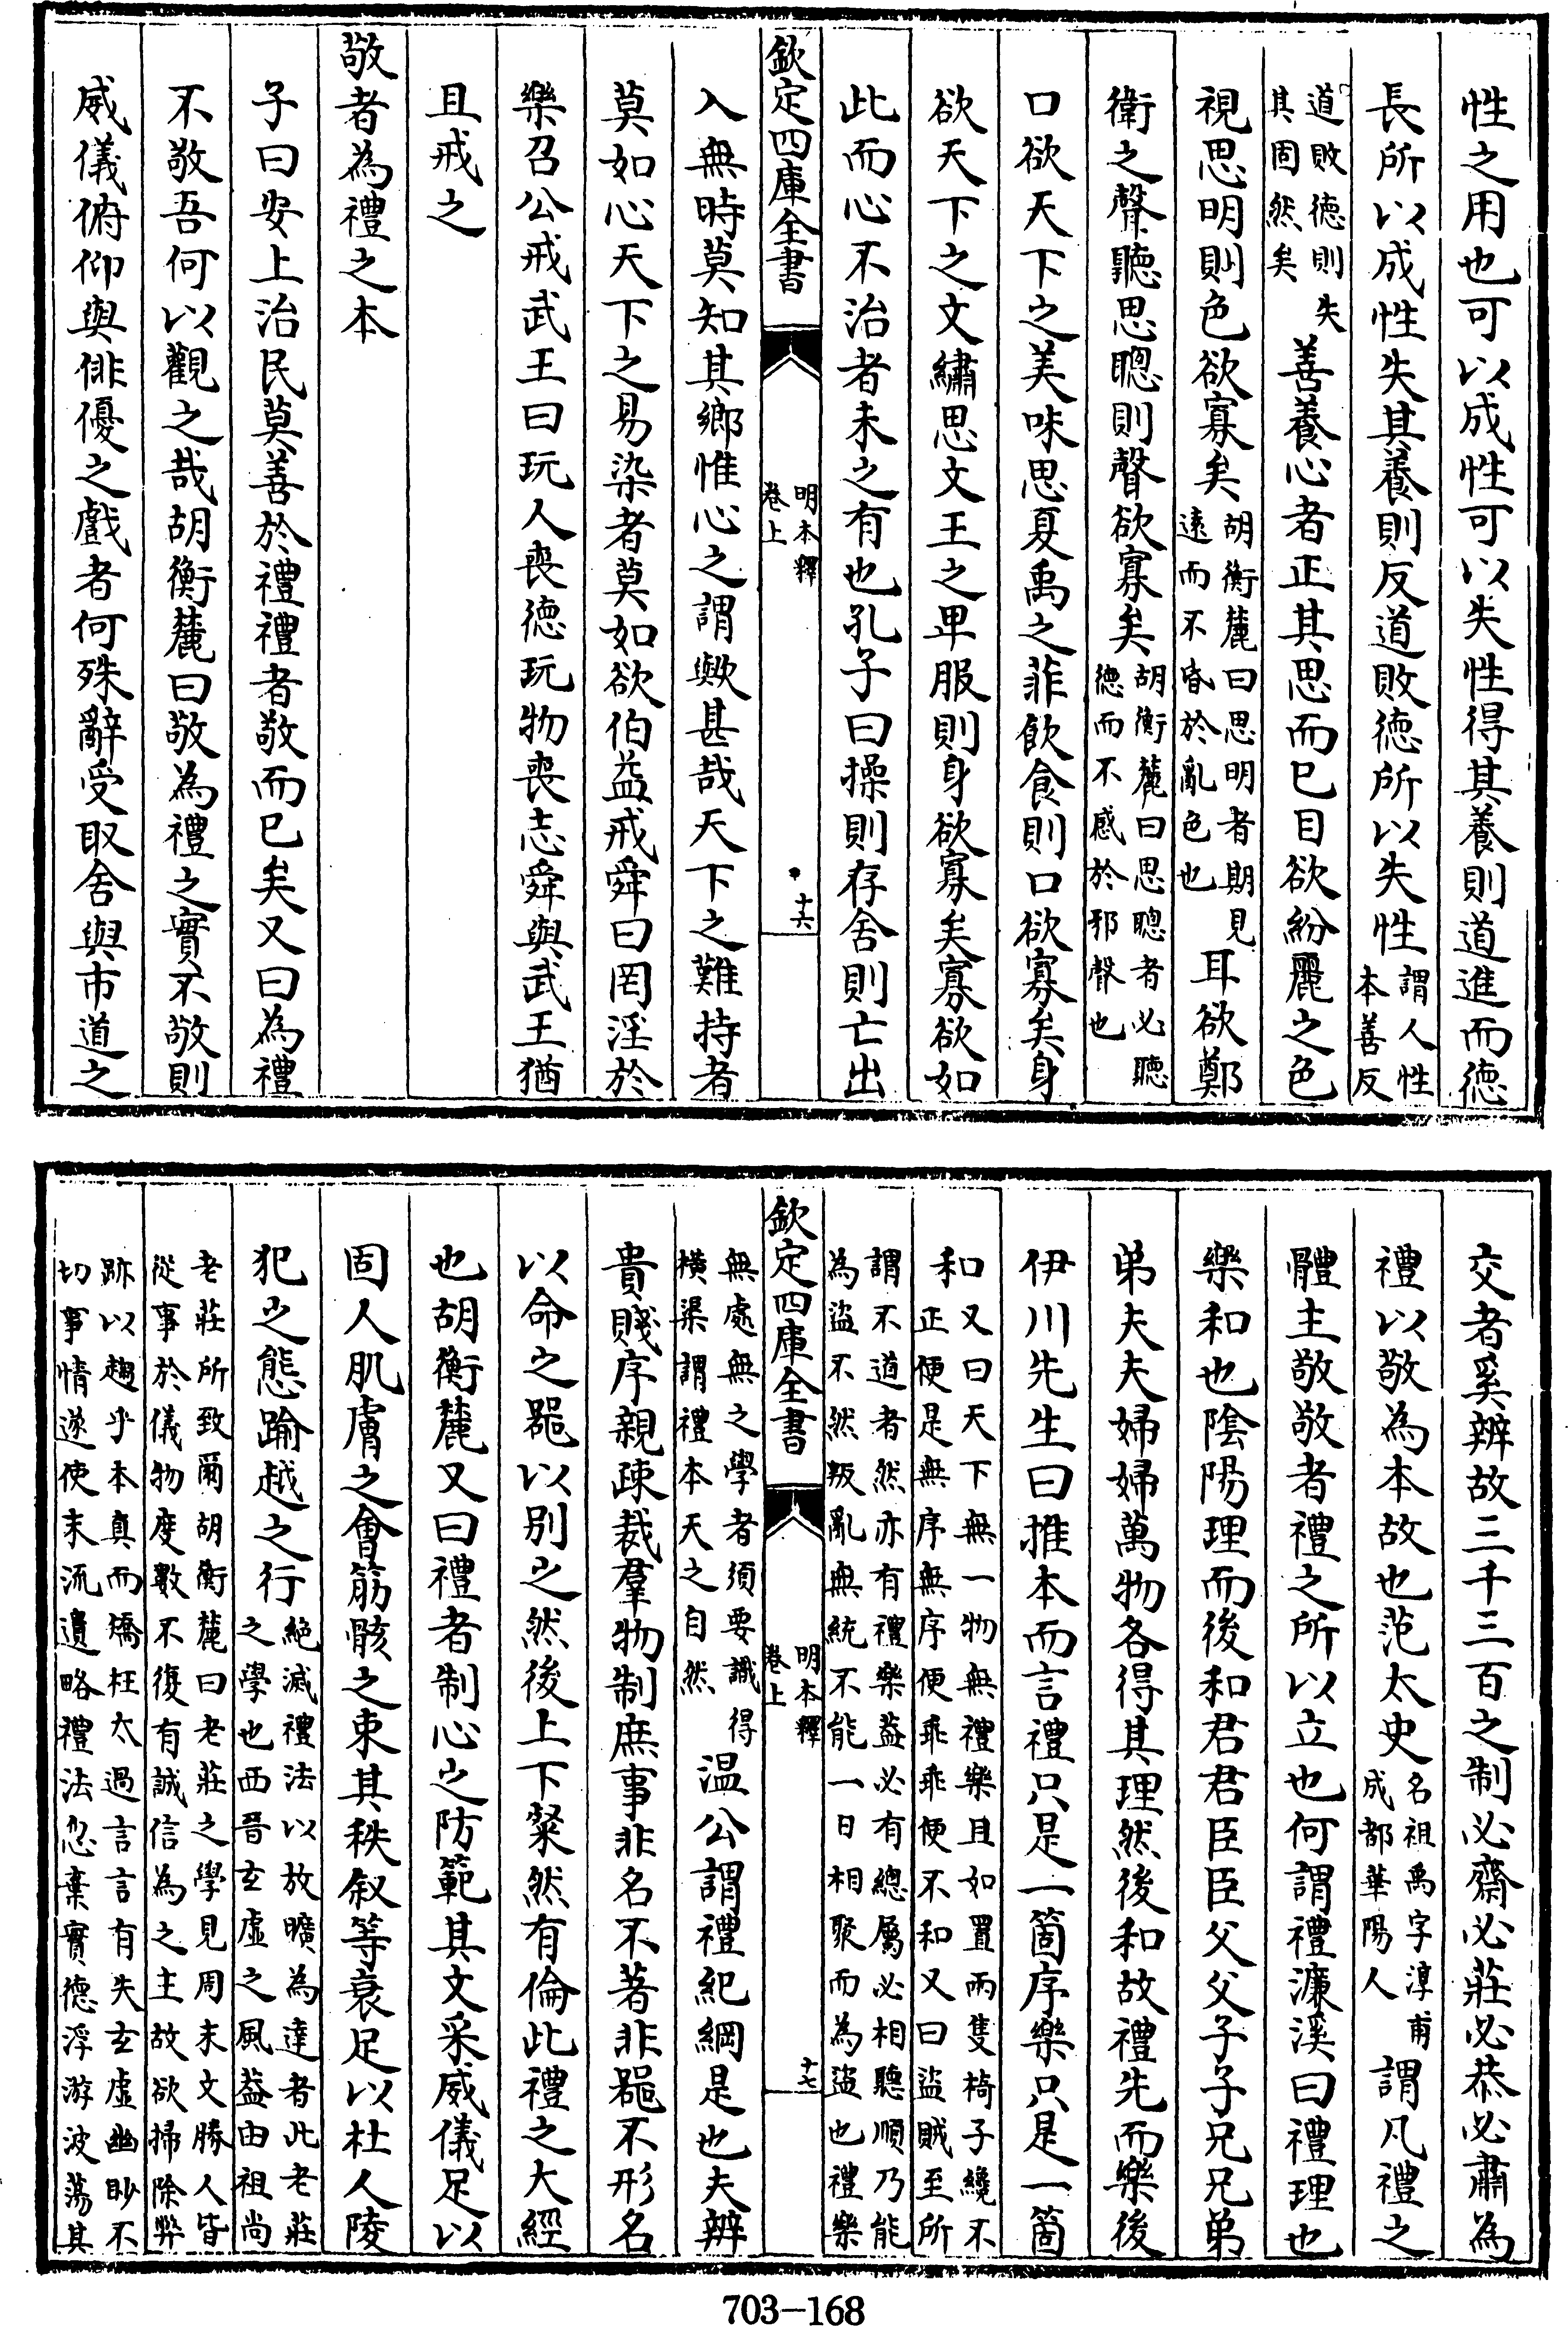 性之用也可以成性可以失性得其養則道進而德
長所以成性失其養則反道敗德所以失性謂人性本善反
道敗德則失其固然矣善養心者正其思而已目欲紛麗之色
視思明則色欲寡矣胡衡麓曰思明者期見遠而不昏於亂色也耳欲鄭
衛之聲聽思聰則聲欲寡矣胡衡麓曰思聰者必聽德而不惑於邪聲也
口欲天下之美味思夏禹之菲飲食則口欲寡矣身
欲天下之文繡思文王之卑服則身欲寡矣寡欲如
此而心不治者未之有也孔子曰操則存舍則亡出
欽定四庫全書
明本釋
卷上
十六
入無時莫知其鄉惟心之謂歟甚哉天下之難持者
莫如心天下之易染者莫如欲伯益戒舜曰罔淫於
樂召公戒武王曰玩人喪德玩物喪志舜與武王猶
且戒之
敬者為禮之本
子曰安上治民莫善於禮禮者敬而已矣又曰為禮
不敬吾何以觀之哉胡衡麓曰敬為禮之實不敬則
威儀俯仰與俳優之戲者何殊辭受取舍與市道之
交者奚辨故三千三百之制必齋必莊必恭必肅為
禮以敬為本故也范太史名祖禹字淳甫成都華陽人謂凡禮之
體主敬敬者禮之所以立也何謂禮濂溪曰禮理也
樂和也陰陽理而後和君君臣臣父父子子兄兄弟
弟夫夫婦婦萬物各得其理然後和故禮先而樂後
伊川先生曰推本而言禮只是一箇序樂只是一箇
和又曰天下無一物無禮樂且如置兩隻椅子纔不正便是無序無序便乖乖便不和又曰盜賊至所
謂不道者然亦有禮樂蓋必有總屬必相聽順乃能為盜不然叛亂無統不能一日相聚而為盜也禮樂
欽定四庫全書
明本釋
卷上
十七
無處無之學者須要識得橫渠謂禮本天之自然溫公謂禮紀綱是也夫辨
貴賤序親疎裁羣物制庶事非名不著非器不形名
以命之器以別之然後上下粲然有倫此禮之大經
也胡衡麓又曰禮者制心之防範其文采威儀足以
固人肌膚之會筋骸之束其秩叙等衰足以杜人陵
犯之態踰越之行絕滅禮法以放曠為達者此老莊之學也西晉玄虛之風蓋由祖尚
老莊所致爾胡衡麓曰老莊之學見周末文勝人皆從事於儀物度數不復有誠信為之主故欲掃除弊
跡以趨乎本真而矯枉太過言言有失玄虛幽眇不切事情遂使末流遺略禮法忽棄實德浮游波蕩其
703-168